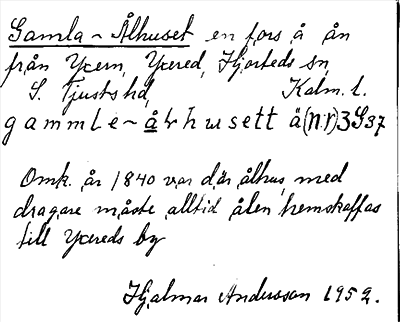 Gamla - Ålhuset en fors å ån
från Yxern, Yxered, Hjorteds sn,
S. Tjusts hd, Kalm. l.
gammle~ålhusett ä (nr) 3937
Omk. år 1840 var där ålhus, med
dragare måste alltid ålen hemskaffas
till Yxereds by
Hjalmar Andersson 1952.